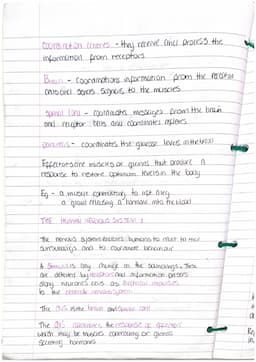 Coordination centres - they receive and process the
information from receptors
Brain - coordinations information from the receptor
and sends signals to the muscles
Spinal Cord - coordinates messages from the brain
and receptor cells and coordinates reflexes
pancreas - coordinates the glucose levels in the blood
Effectors are muscles or glands that produce a
response to restore optimum levels in the body
Eg - a muscle contracting to lift a leg
- a gland releasing a hormone into the blood
THE HUMAN NERVOUS SYSTEM :
The nervous system enables humans to react to their
surroundings and to coordinate behaviour
A Stimulus is any change in the surroundings. These
are detected by receptors and information passes
along neurones cells as electrical impulses
to the central nervous system
The CNS is the brain and spinal cord
The CNS coordinates the response of effectors
which may be muscles contracting or glands
secreting hormones